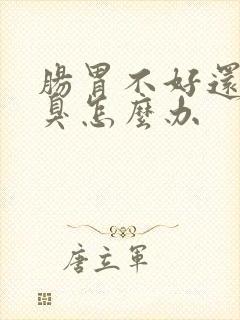 腸胃不好還
臭怎麼办
唐立軍